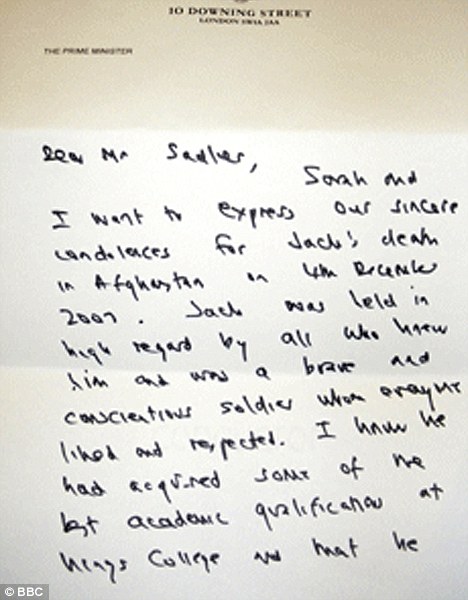 10 DOWNING STREET
LONDON SW1A 2AA
THE PRIME MINISTER
Dear Mr Sadler,
Sarah and
I want to express our sincere
condolences for Jack's death
in Afghanistan on 4th December
2007. Jack was held in
high regard by all who knew
him and was a brave and
conscientious soldier whom everyone
liked and respected. I know he
had acquired some of the
best academic qualification at
Kings College and that he
© BBC